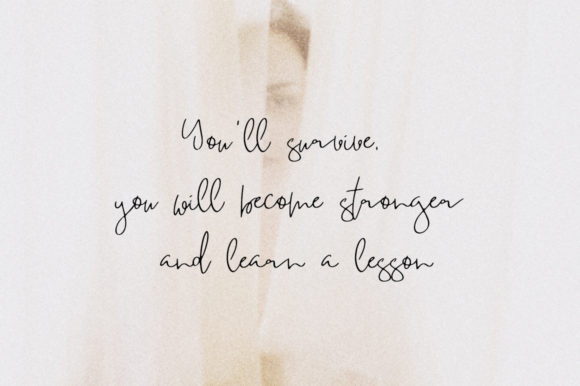 You'll survive.
you will become stronger
and learn a lesson